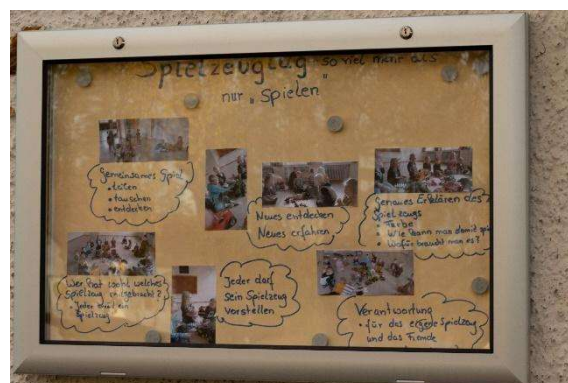 Spielzeugtag so viel mehr als
nur „Spielen"
Gemeinsames Spiel
• teilen
• tauschen
• entdecken
Neues entdecken
Neues erfahren
Genaues Erklären des
Spielzeugs
• Farbe
• Wie kann man damit
• Wofür braucht man es?
Wer hat welches
Spielzeug mitgebracht?
• Jeder ein
Spielzeug
Jeder darf
sein Spielzeug
vorstellen
Verantwortung
• für das eigene Spielzeug
und das Fremde